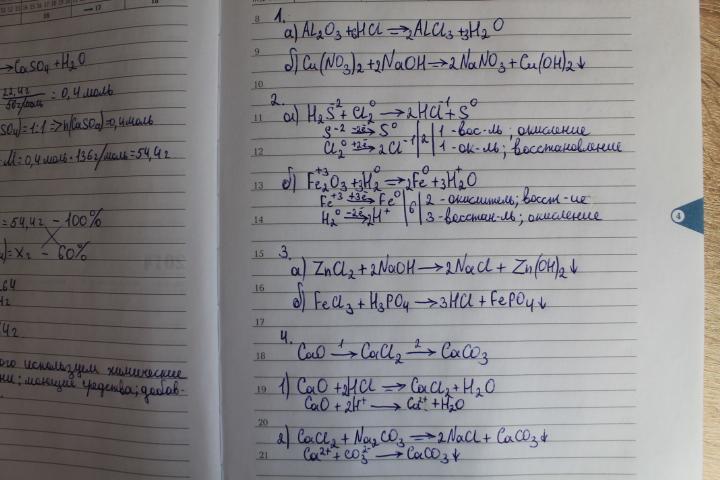 →CaSO₄+H₂O
22,4г
56г/моль = 0,4 моль
SO₄)=1:1⇒n(CaSO₄)=0,4моль
M=0,4моль·136г/моль=54,4г
=54,4г – 100%
)=xг – 60%
64
4г
ого используем химические
ни; моющие средства; добав-
8
9
10
11
12
13
14
15
16
17
18
19
20
21
1.
а) Al₂O₃+6HCl→2AlCl₃+3H₂O
б) Cu(NO₃)₂+2NaOH→2NaNO₃+Cu(OH)₂↓
2.
а) H₂S⁻²+Cl₂⁰→2HCl⁻¹+S⁰
S⁻² –2e→ S⁰ | 1-вос-ль; окисление
Cl₂⁰ +2e→ 2Cl⁻¹ |2| 1-ок-ль; восстановление
б) Fe₂⁺³O₃+3H₂⁰→2Fe⁰+3H₂⁺O
Fe⁺³ +3e→ Fe⁰ | 2-окислитель; восст-ие
H₂⁰ –2e→2H⁺ |6| 3-восстан-ль; окисление
3.
а) ZnCl₂+2NaOH→2NaCl+Zn(OH)₂↓
б) FeCl₃+H₃PO₄→3HCl+FePO₄↓
4.
CaO –1→ CaCl₂ –2→ CaCO₃
1) CaO+2HCl→CaCl₂+H₂O
CaO+2H⁺→Ca²⁺+H₂O
2) CaCl₂+Na₂CO₃→2NaCl+CaCO₃↓
Ca²⁺+CO₃²⁻→CaCO₃↓
4